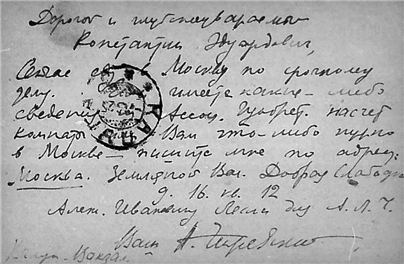 Дорогой и глубокоуважаемый
Константин Эдуардович,
Сейчас еду в Москву по срочному
делу. имеете какие-либо
сведения Ассоц. Изобрет. насчет
комнаты Вам что-либо нужно
в Москве – пишите мне по адресу:
Москва. Земляной Вал. Добрая Слободка
д. 16. кв. 12
Алек. Иванову для А. Л. Ч.
Ваш А. Чижевский
Вокзал
КАЛУГА